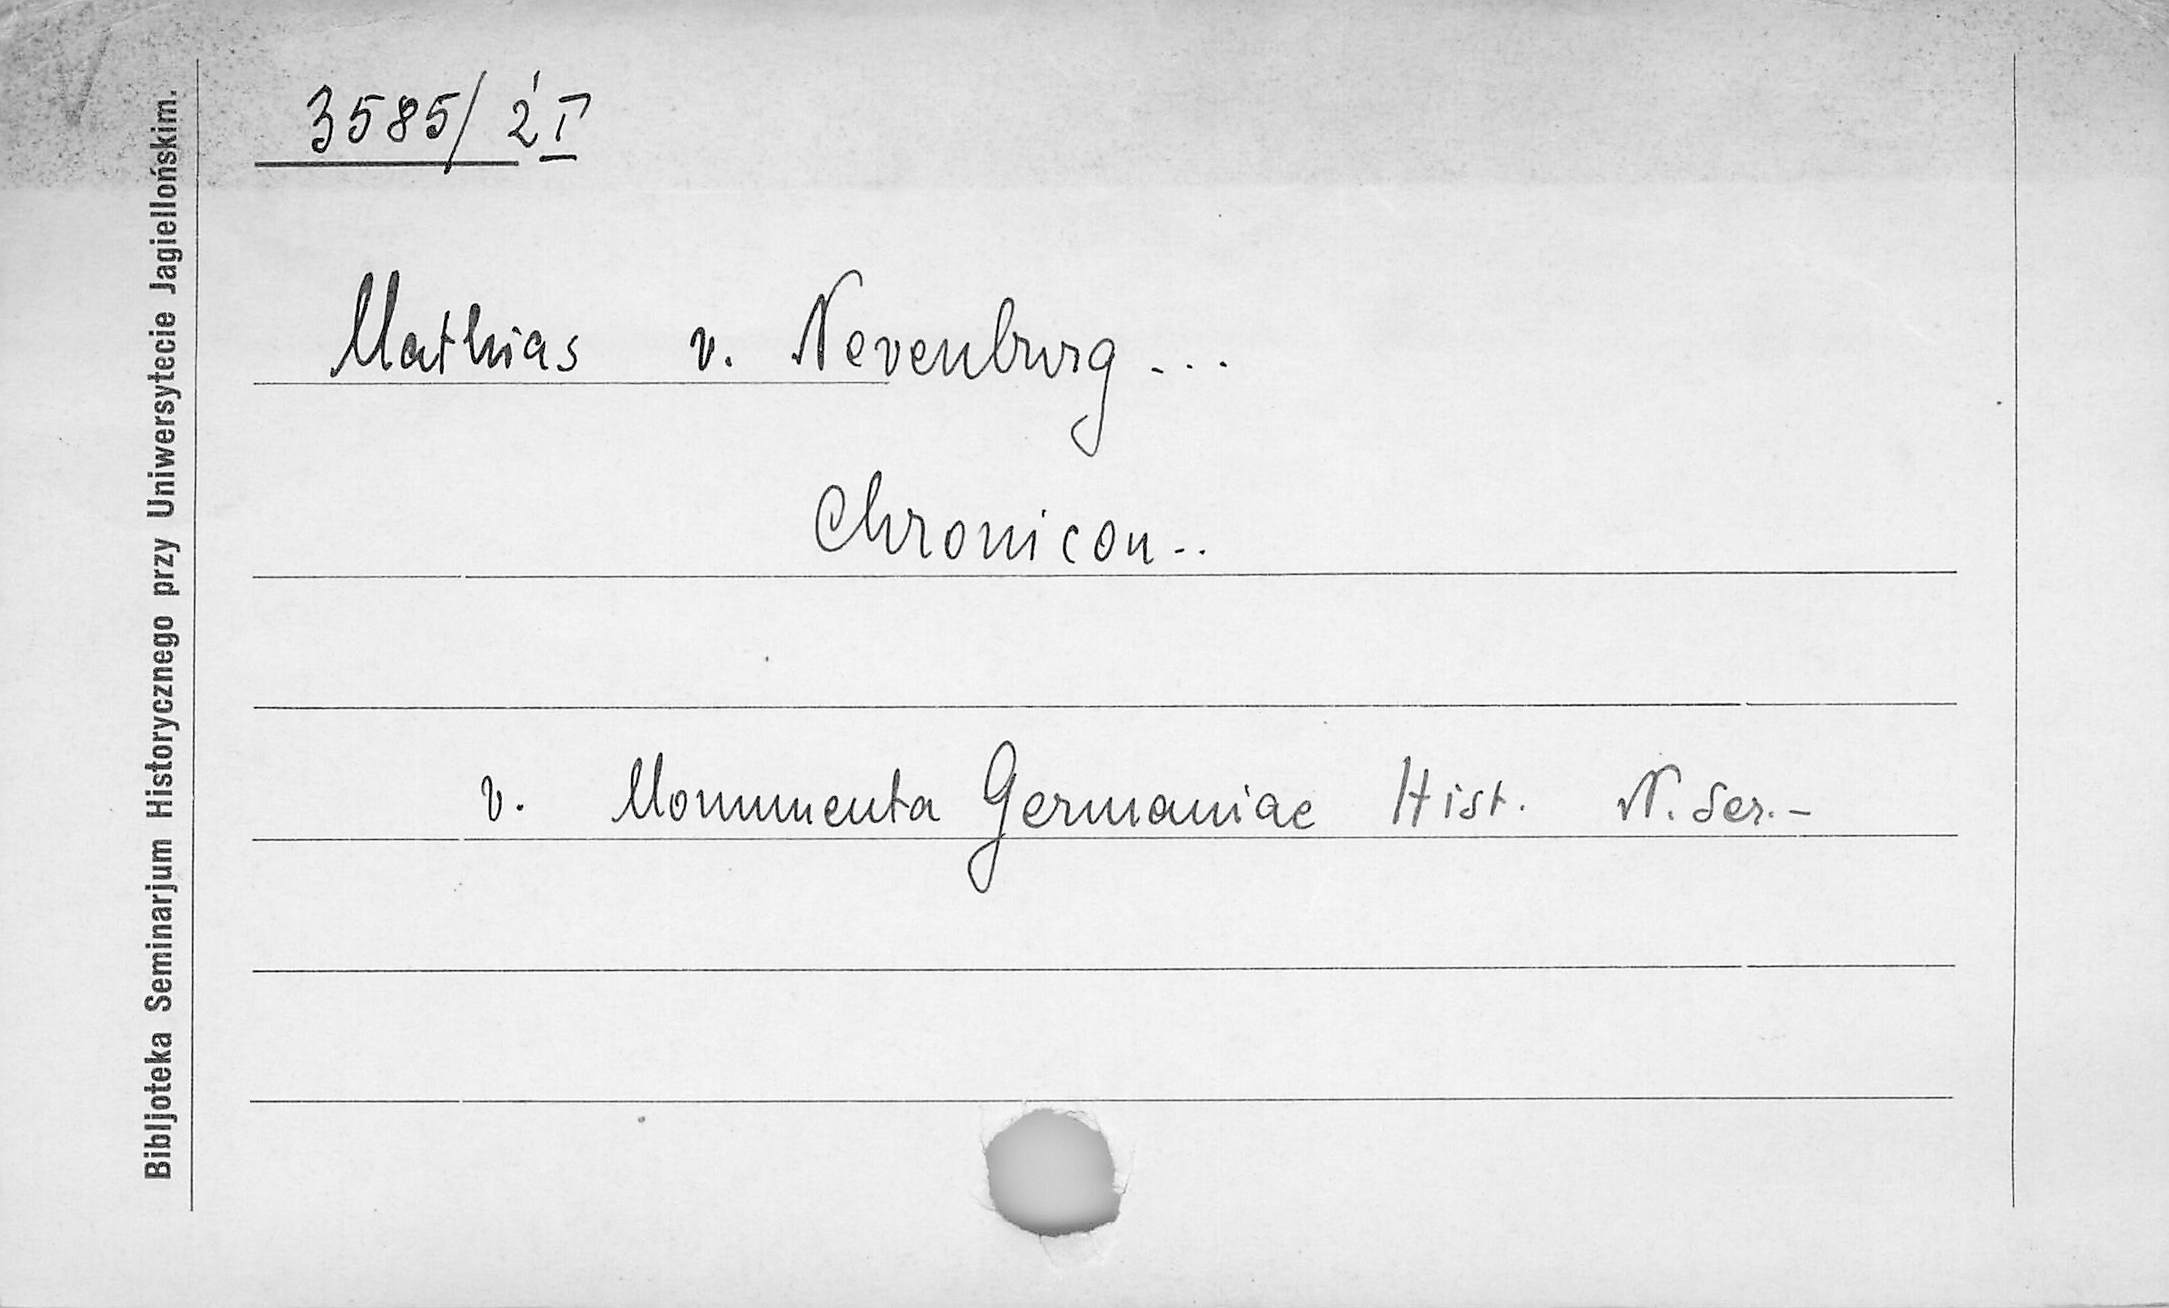 3585/2 I
Mathias v. Nevenburg...
Chronicon..
v. Monumenta Germaniae Hist. N. Ser.-
Bibljoteka Seminarjum Historycznego przy Uniwersytecie Jagiellońskim.